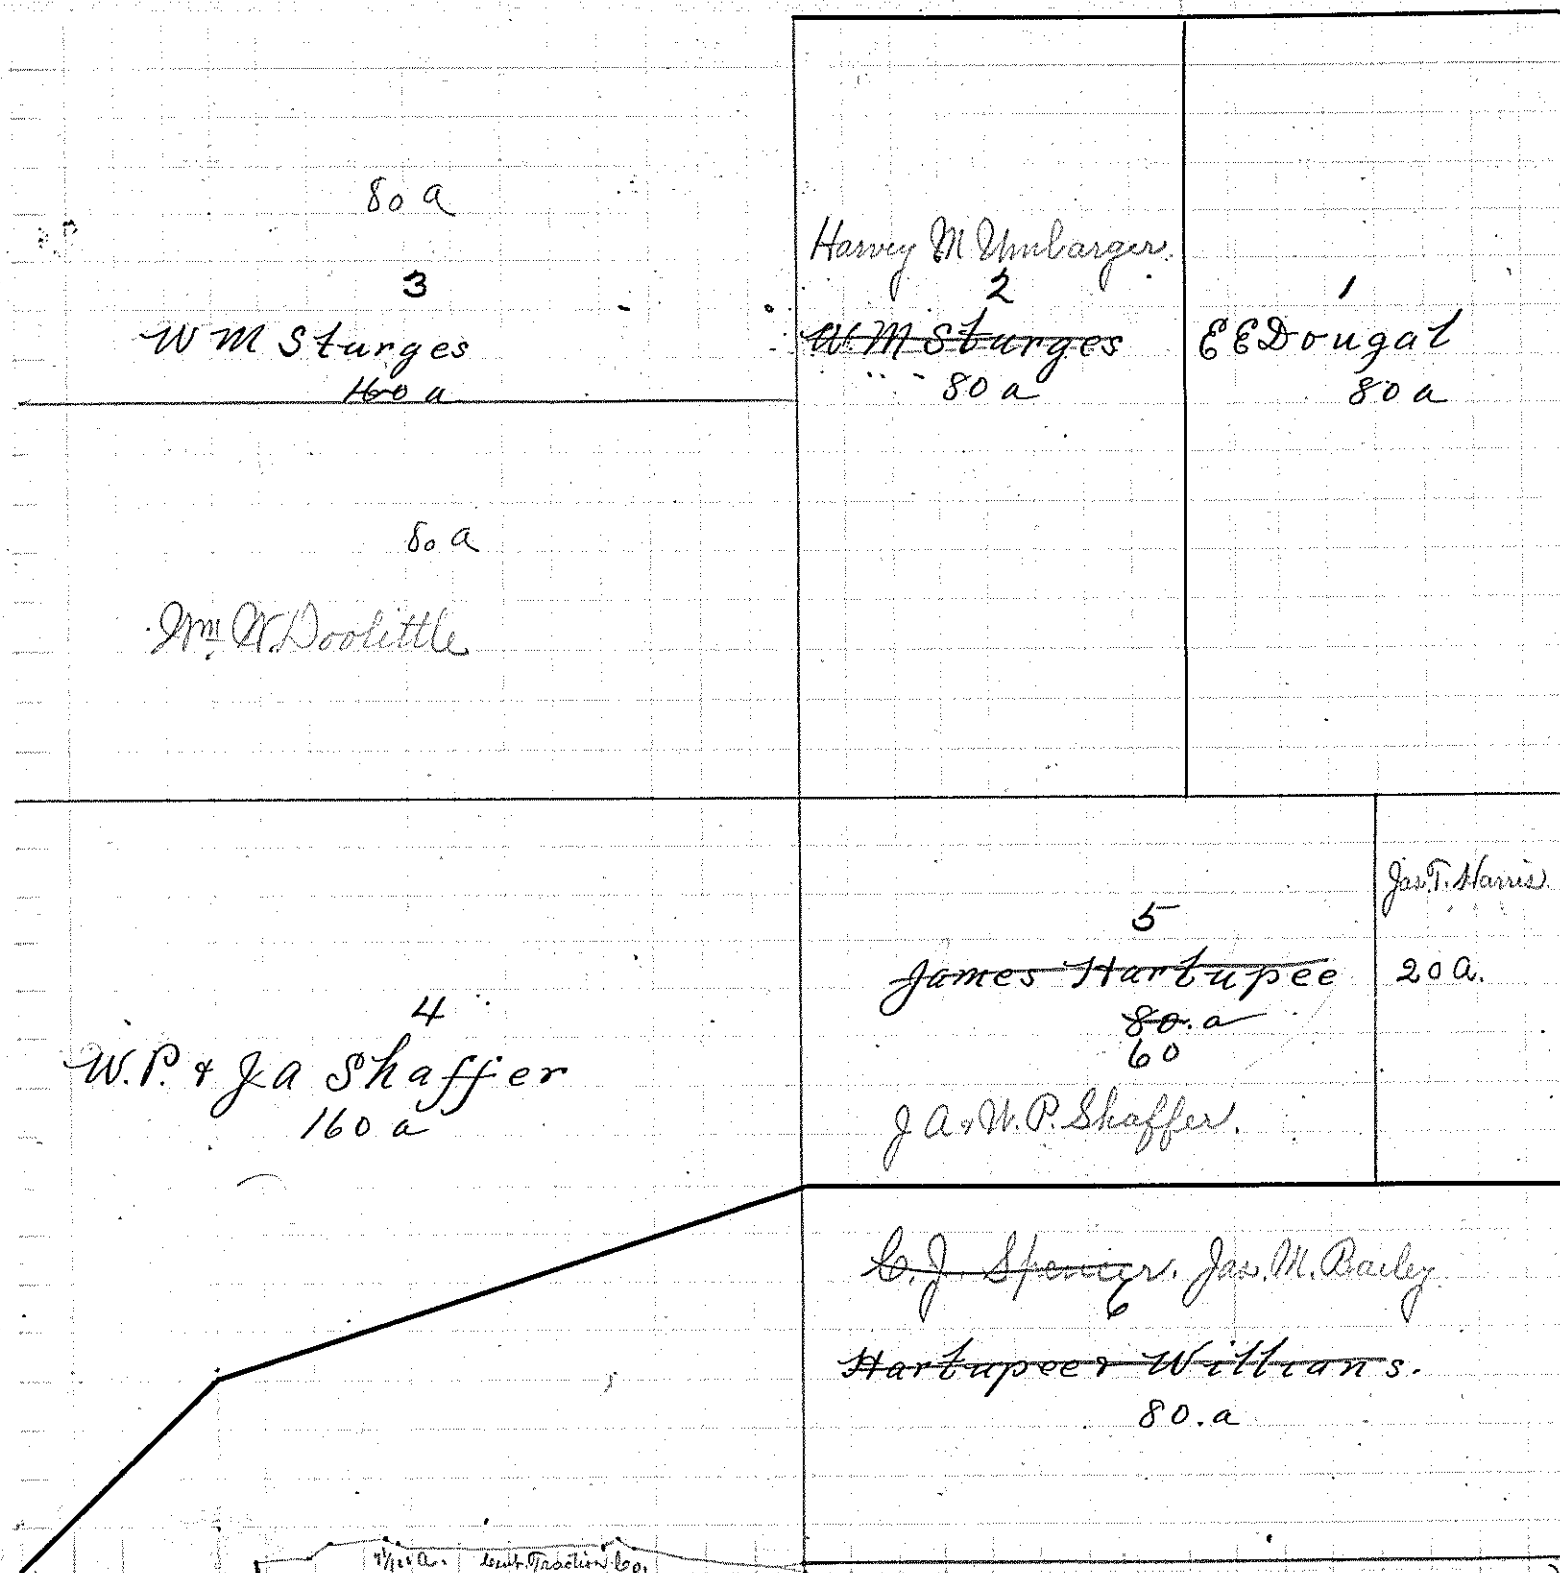 80 a
3
W M Sturges
160 a
Harvey M Umbarger.
2
W. M Sturges
80 a
1
E E Dougal
80 a
80 a
Wm W. Doolittle
4
W. P. & J. A Shaffer
160 a
5
James Hartupee
80. a
60
J A & W. P. Shaffer.
Jas. T. Harris
20 a.
C. J. Spencer. Jas. M. Bailey
6
Hartupee & Willians.
80. a
Traction Co,